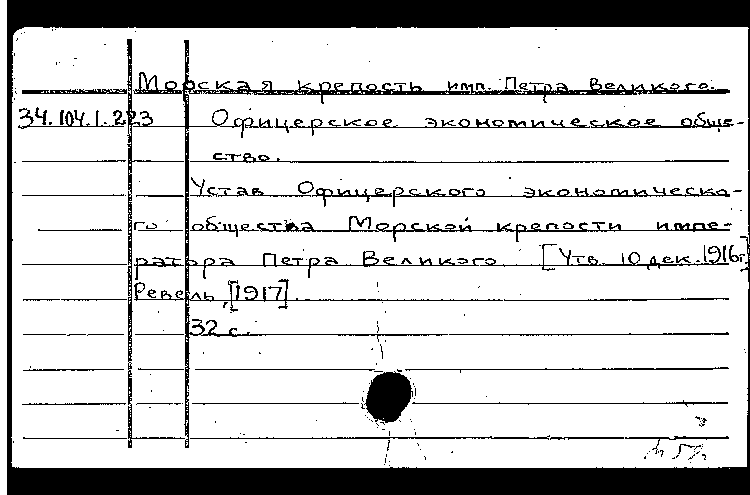 Морская крепость имп. Петра Великого.
34.104.1.223 Офицерское экономическое обще-
ство.
Устав Офицерского экономическо-
го общества Морской крепости импе-
ратора Петра Великого [Утв. 10 дек. 1916г.]
Ревель, [1917].
32 с.